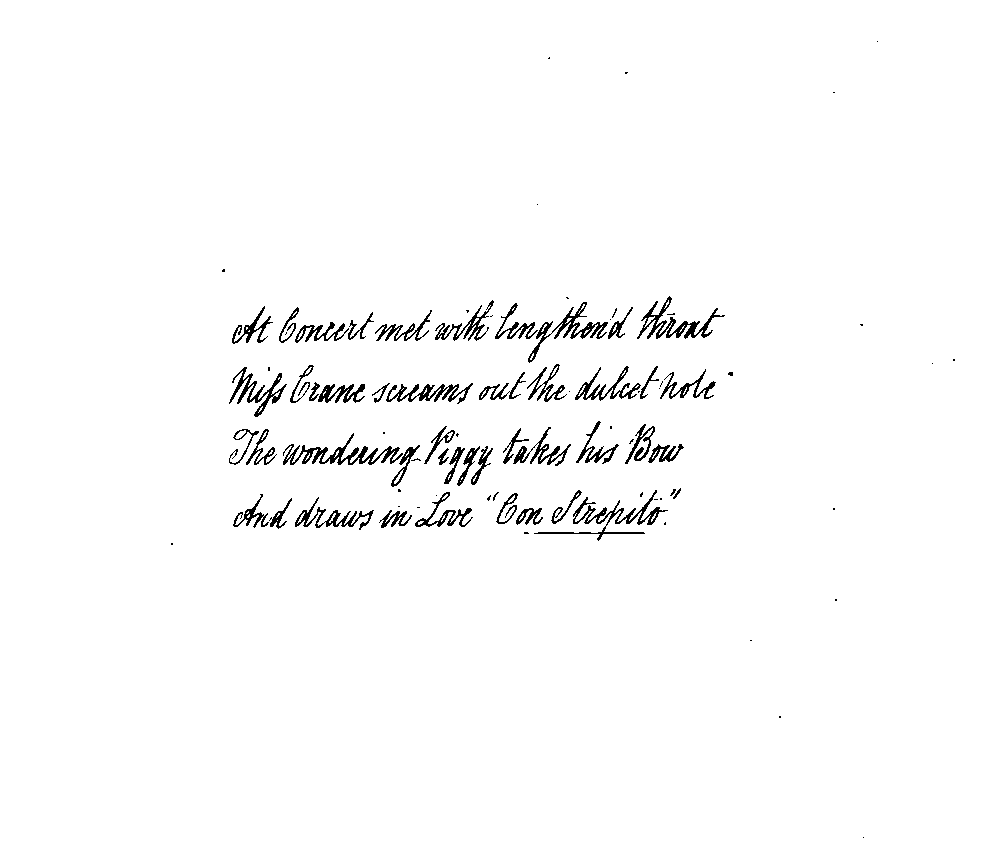 At Concert met with lengthen'd throat
Miss Crane screams out the dulcet note
The wondering Piggy takes his Bow
And draws in Love "Con Strepito."